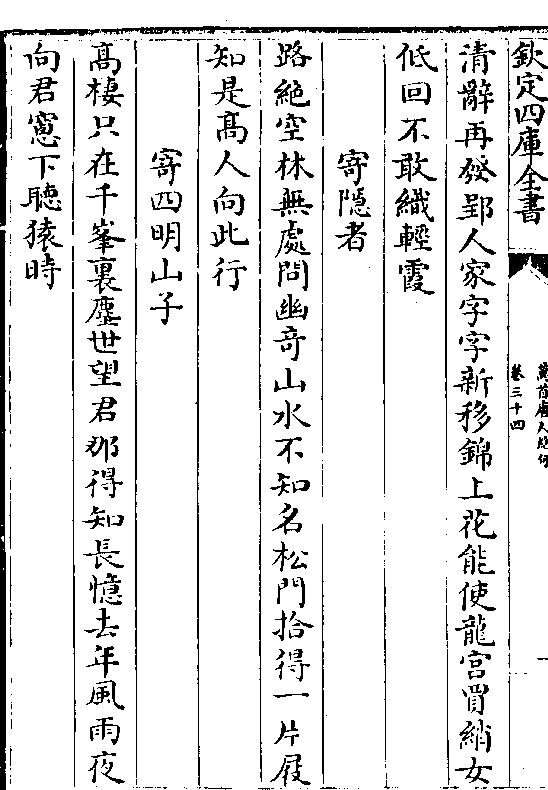 欽定四庫全書
萬首唐人絶句
卷三十四
清辭再發郢人家字字新移錦上花能使龍宮買綃女
低回不敢織輕霞
寄隱者
路絶空林無處問幽奇山水不知名松門拾得一片屐
知是髙人向此行
寄四明山子
髙棲只在千峯裏塵世望君那得知長憶去年風雨夜
向君窻下聽猿時